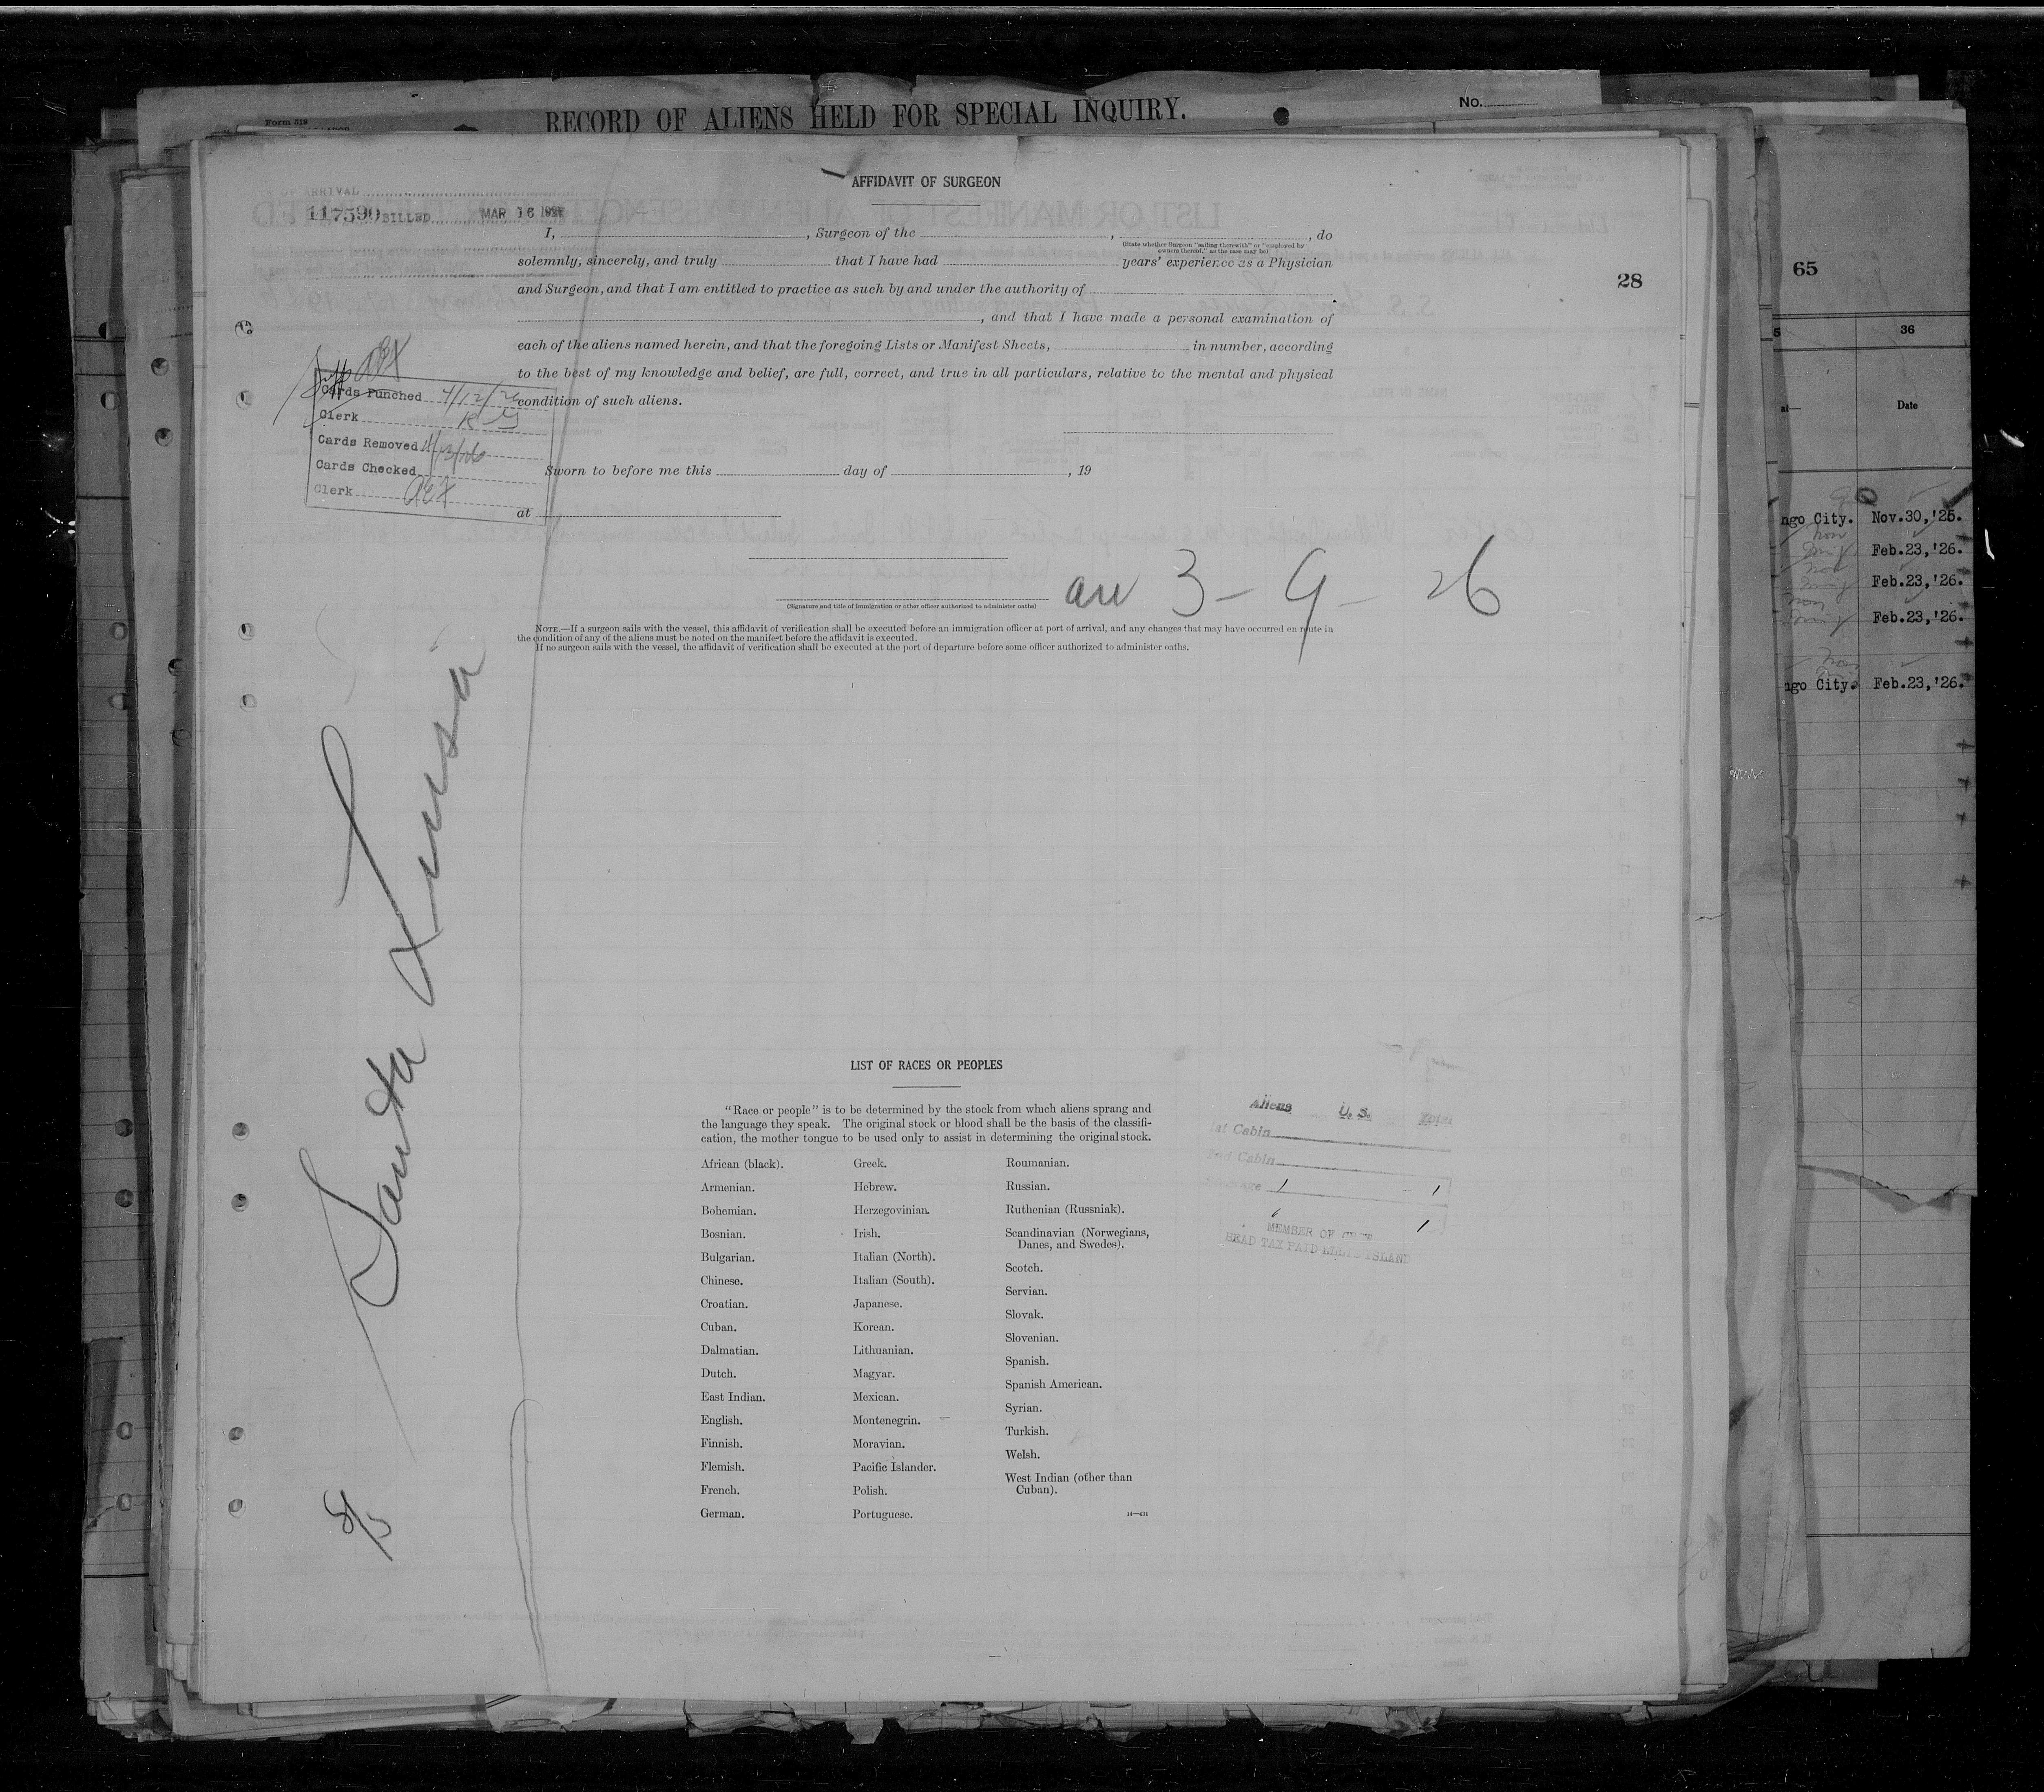 Form 518
RECORD OF ALIENS HELD FOR SPECIAL INQUIRY.
No.
AFFIDAVIT OF SURGEON
ARRIVAL
117590 BILLED MAR 16
I, , Surgeon of the , , do
(State whether Surgeon "sailing therewith" or "employed by
owners thereof," as the case may be)
solemnly, sincerely, and truly that I have had years' experience as a Physician
and Surgeon, and that I am entitled to practice as such by and under the authority of
, and that I have made a personal examination of
each of the aliens named herein, and that the foregoing Lists or Manifest Sheets, in number, according
to the best of my knowledge and belief, are full, correct, and true in all particulars, relative to the mental and physical
condition of such aliens.
Cards Punched 4/12/26
Clerk
Cards Removed 4/13/26
Cards Checked
Clerk
Sworn to before me this day of , 19
at
arr 3-9-26
(Signature and title of immigration or other officer authorized to administer oaths)
NOTE.—If a surgeon sails with the vessel, this affidavit of verification shall be executed before an immigration officer at port of arrival, and any changes that may have occurred en route in
the condition of any of the aliens must be noted on the manifest before the affidavit is executed.
If no surgeon sails with the vessel, the affidavit of verification shall be executed at the port of departure before some officer authorized to administer oaths.
28
65
36
Date
ngo City. Nov.30,'25.
Feb.23,'26.
Feb.23,'26.
Feb.23,'26.
ngo City. Feb.23,'26.
Santa Luisa
LIST OF RACES OR PEOPLES
"Race or people" is to be determined by the stock from which aliens sprang and
the language they speak. The original stock or blood shall be the basis of the classifi-
cation, the mother tongue to be used only to assist in determining the original stock.
African (black).
Armenian.
Bohemian.
Bosnian.
Bulgarian.
Chinese.
Croatian.
Cuban.
Dalmatian.
Dutch.
East Indian.
English.
Finnish.
Flemish.
French.
German.
Greek.
Hebrew.
Herzegovinian.
Irish.
Italian (North).
Italian (South).
Japanese.
Korean.
Lithuanian.
Magyar.
Mexican.
Montenegrin.
Moravian.
Pacific Islander.
Polish.
Portuguese.
Roumanian.
Russian.
Ruthenian (Russniak).
Scandinavian (Norwegians,
Danes, and Swedes).
Scotch.
Servian.
Slovak.
Slovenian.
Spanish.
Spanish American.
Syrian.
Turkish.
Welsh.
West Indian (other than
Cuban).
14—431
Aliens U.S. Total
Cabin
Cabin
1 1
1
MEMBER OF CREW
HEAD TAX PAID ELLIS ISLAND